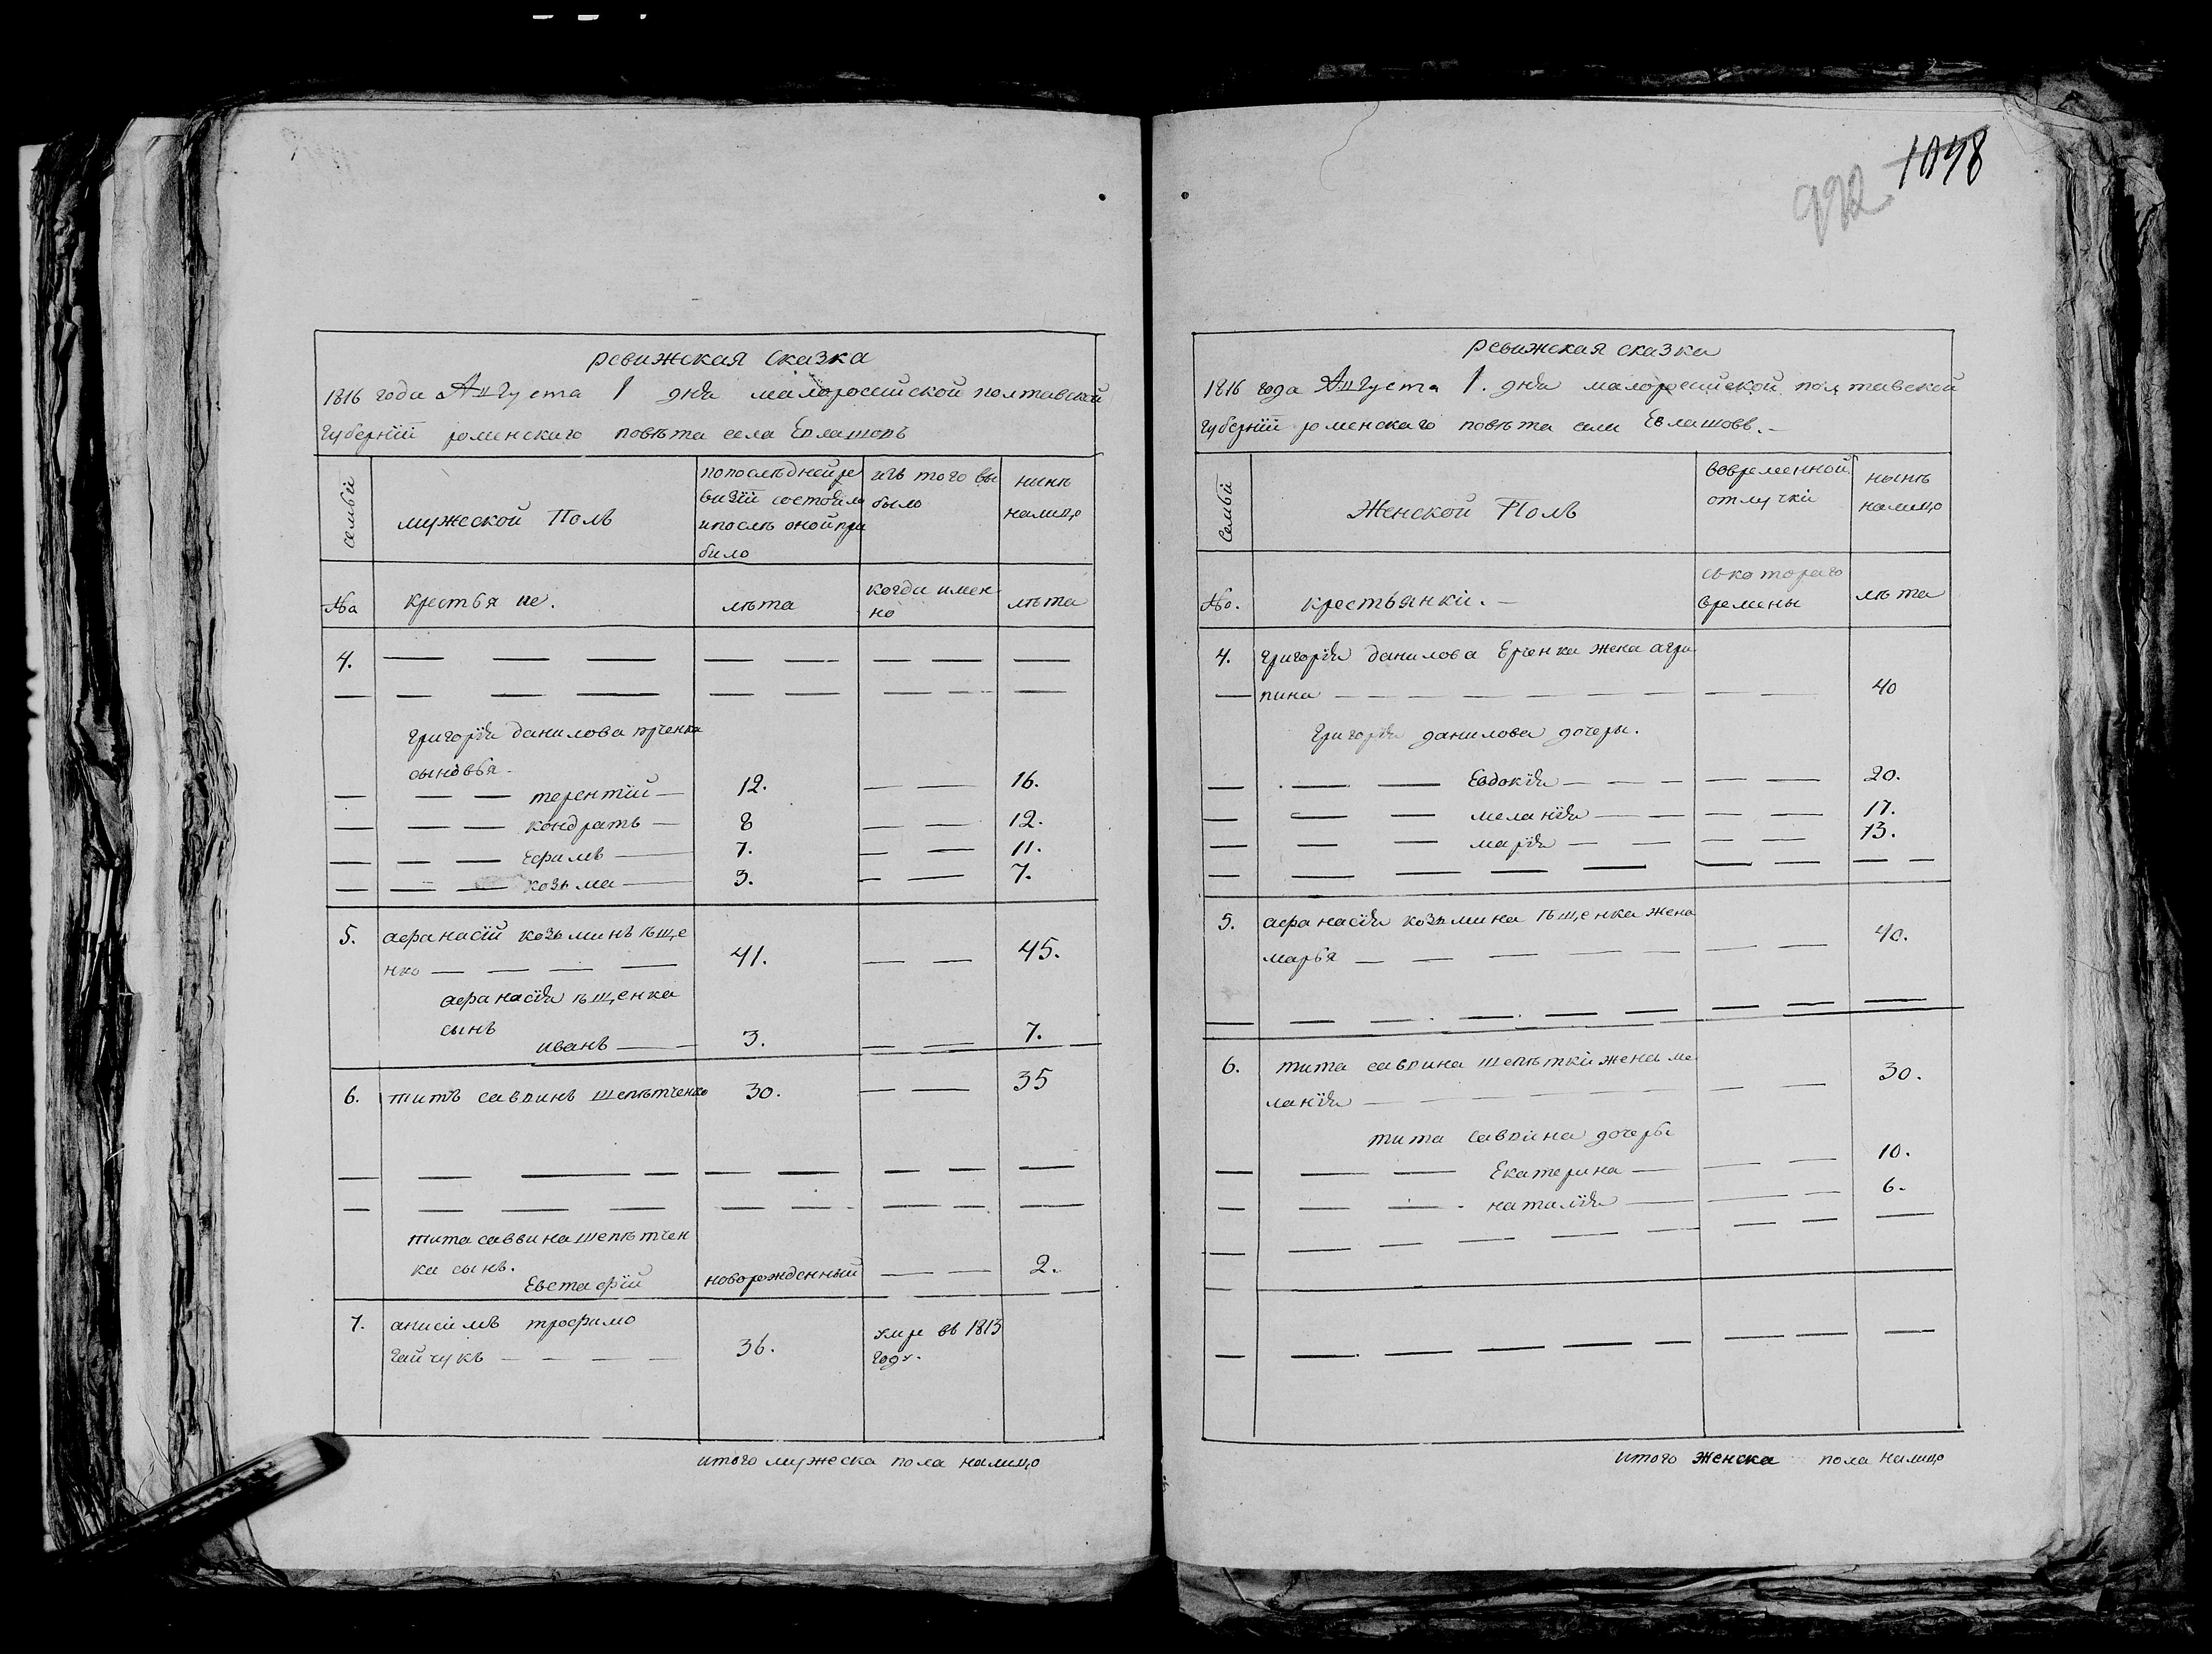 ревижская сказка
1816 года Августа 1 дня малоросийской полтавской
губернїй роменскаго повѣта села Евлашовъ
семьй
мужеской Полъ
попослѣдней ре
визїй состояло
ипослѣ оной при
било
изъ того вы
было
нинѣ
налицо
№
крестья не.
лѣта
когда имен
но
лѣта
4.
григорїя данилова
сыновья
терентїй 12. 16.
кондратъ 8 12.
Ефимъ 7. 11.
козьма 3. 7.
5. афанасїй козьминъ ѣще
нко 41. 45.
афанасїя ѣщенка
сынъ
иванъ 3. 7.
6. титъ саввинъ шепѣтченко 30. 35
тита саввина шепѣтчен
ка сынъ.
Евстафїй новорожденный 2.
7. анисимъ трофимо
гайчукъ 36. умре въ 1813
году.
итого мужеска пола налицо
1048
ревижская сказка
1816 года Августа 1. дня малоросийской полтавской
губернїй роменскаго повѣта села Евлашовъ.
Семьй
Женской Полъ
вовременной
отлучкі
нынѣ
налицо
№.
крестьянкі.
съкотораго
времены
лѣта
4. григорїя данилова Ерченка жена агри
пина 40
Григорїя данилова дочеры.
Евдокїя 20.
меланїя 17.
марїя 13.
5. афанасїя козьмина ѣщенка жена
марья 40.
6. тита саввина шепѣткі жена ме
ланїя 30.
тита Саввина дочеры
Екатерина 10.
наталїя 6.
итого женска пола налицо